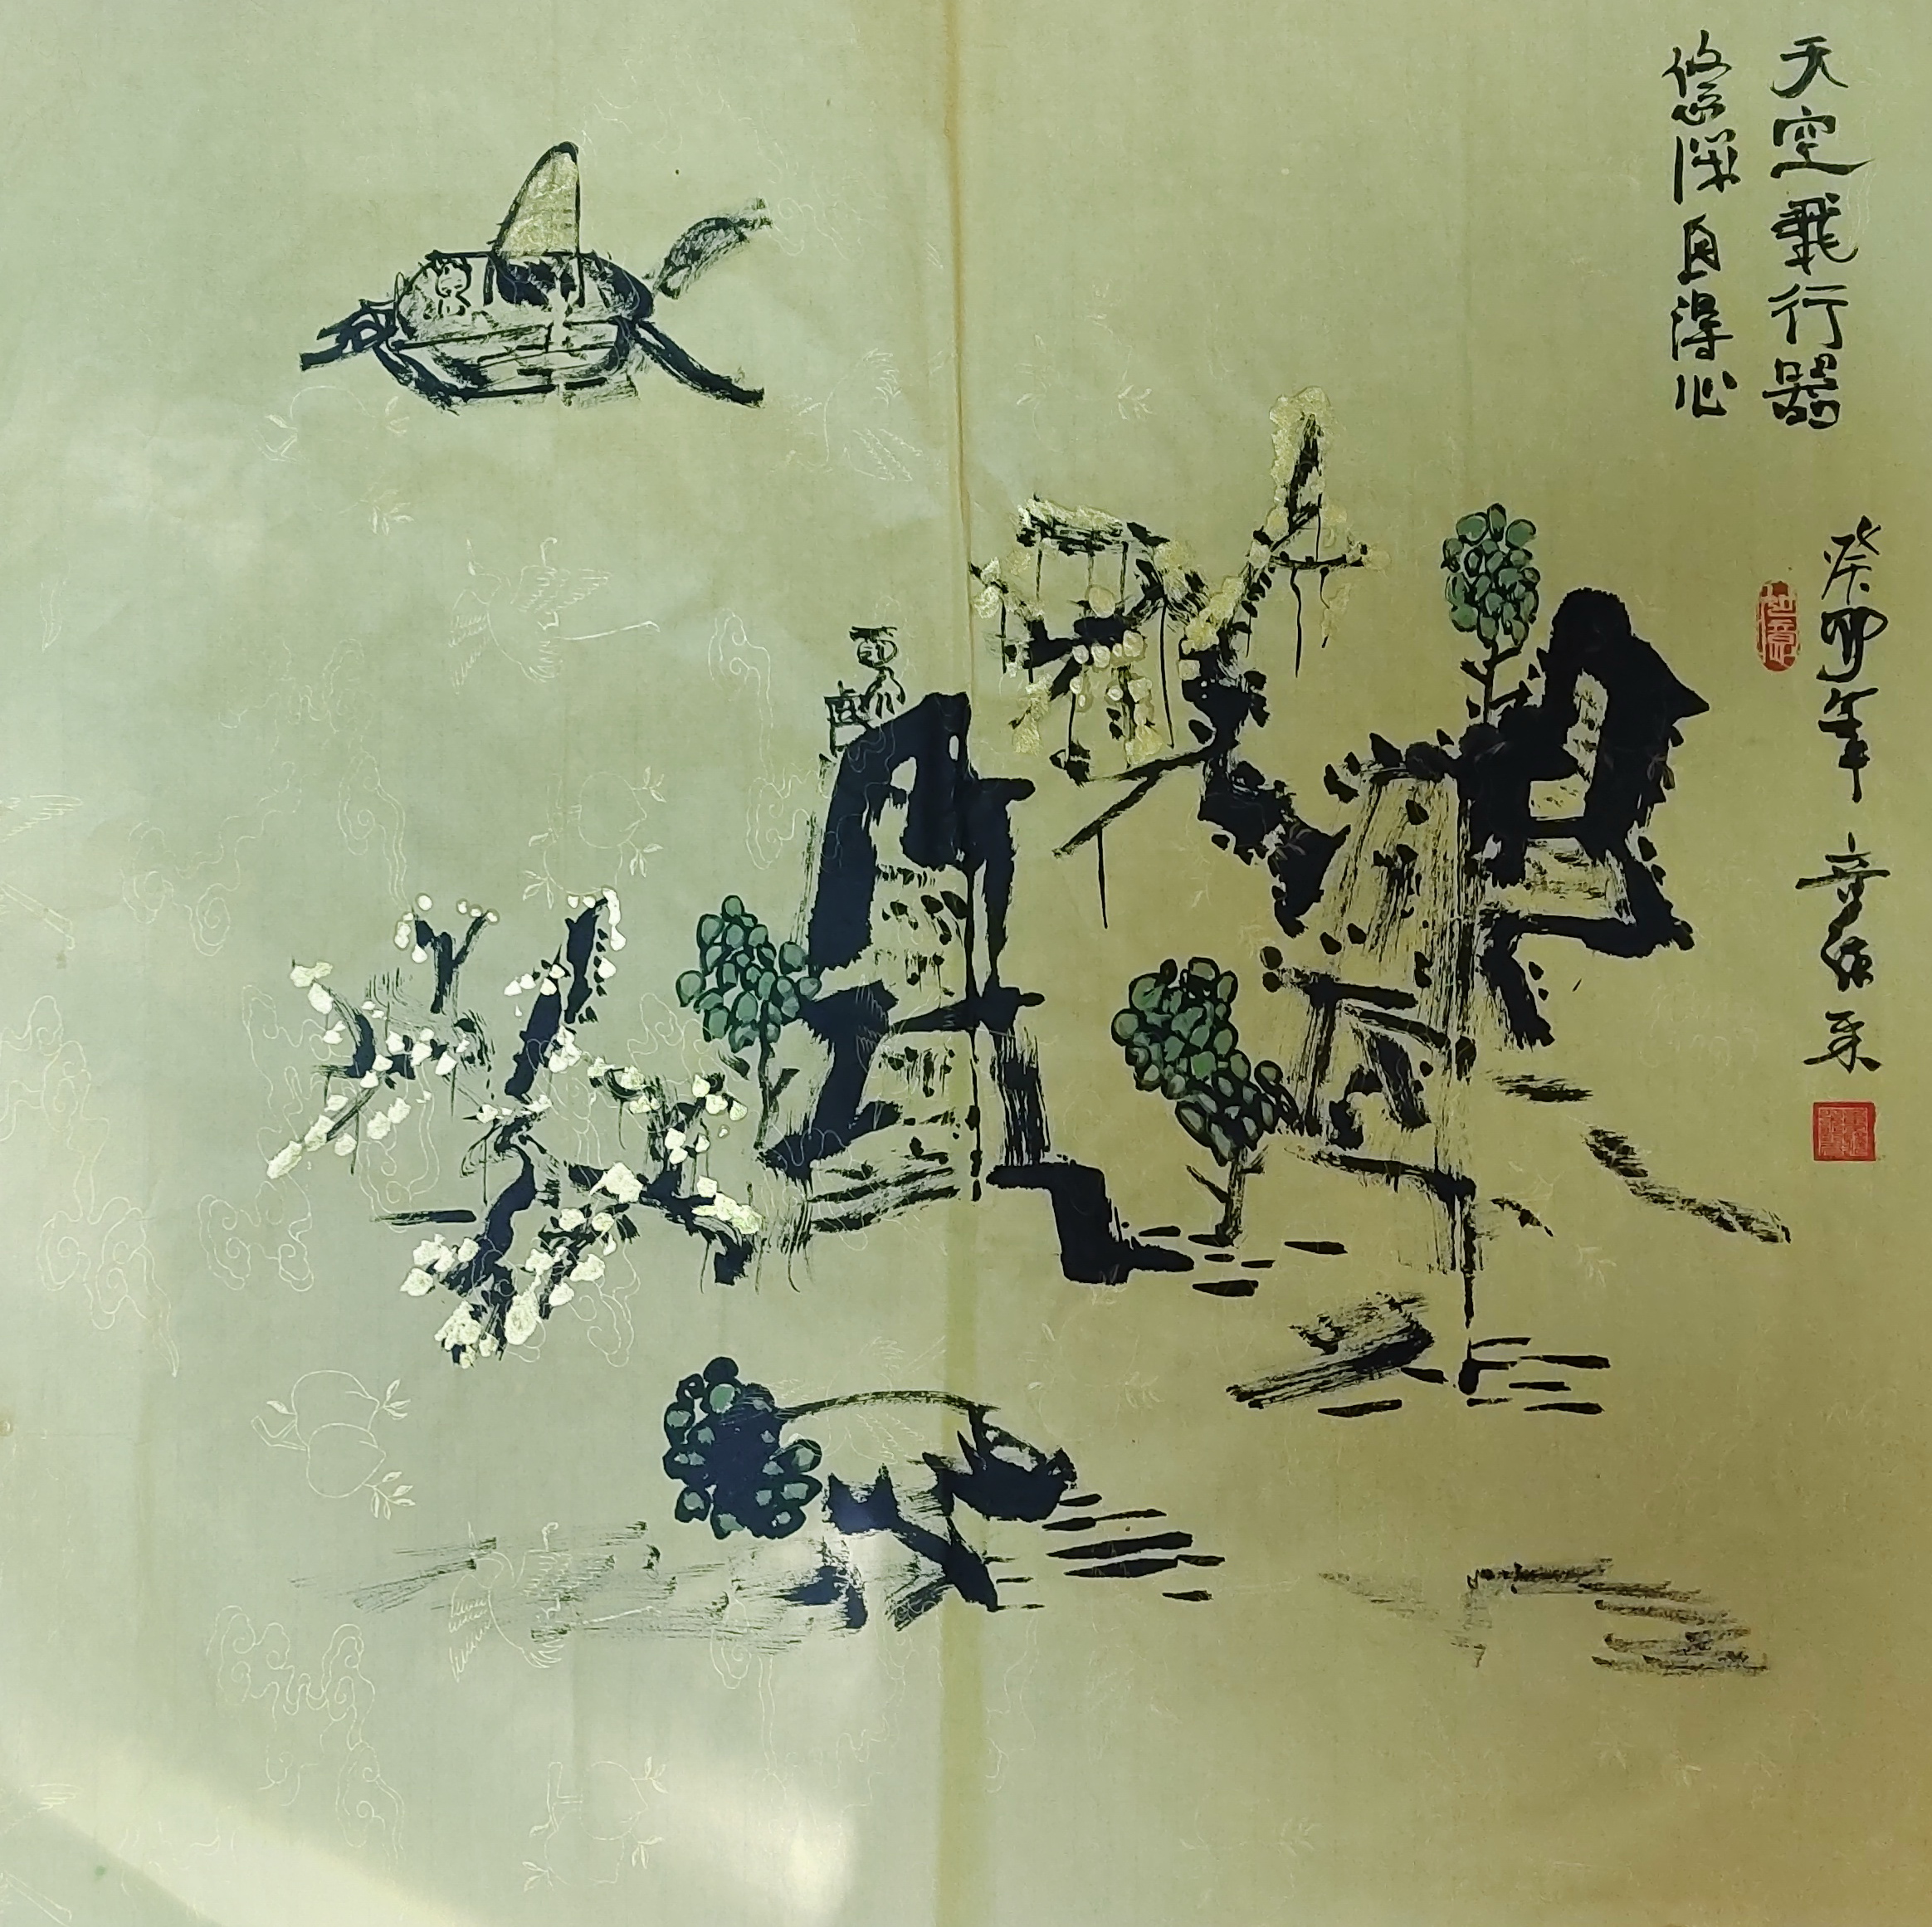 天空飛行器
悠深自得心
癸卯年
如意